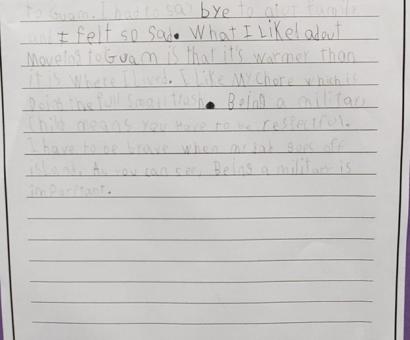 to Guam. I had to say bye to
and I felt so sad. What I Liked adout
Moveing to Guam is that it's warmer than
it is where I lived. I like My Chore which is
Being the full small trash. Being a military
Child means you have to be respectful.
I have to be brave when my dad goes off
island. As you can see, Being a military is
important.